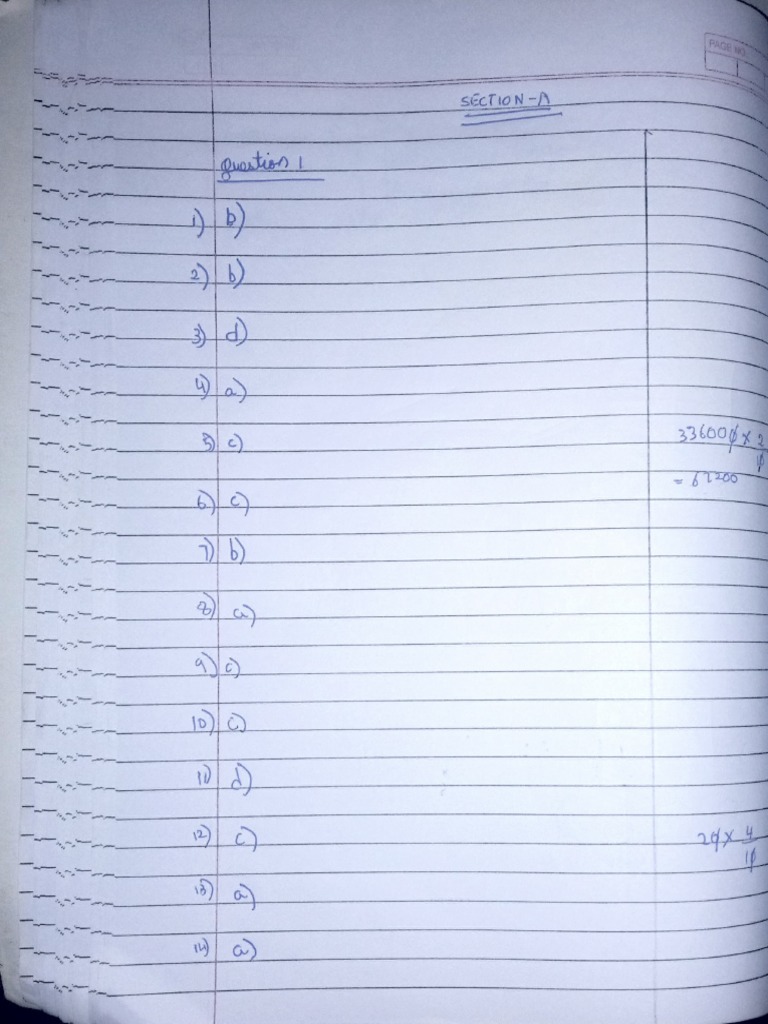 PAGE NO.
SECTION-A
Question 1
1) b)
2) b)
3) d)
4) a)
5) c)
336000 × 2/10
= 67200
6) c)
7) b)
8) a)
9) c)
10) c)
11) d)
12) c)
20 × 4/10
13) a)
14) a)